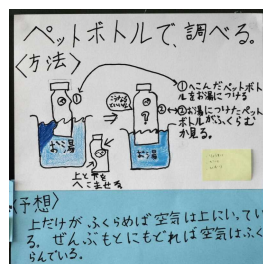 ペットボトルで、調べる。
〈方法〉
①へこんだペットボト
ルをお湯につける
②お湯につけたペット
ボトルがふくらむ
か見る。
①
②
?
お湯
お湯
上と下を
へこませる
〈予想〉
上だけがふくらめば空気は上にいってい
る。ぜんぶもとにもどれば空気はふく
らんでいる。